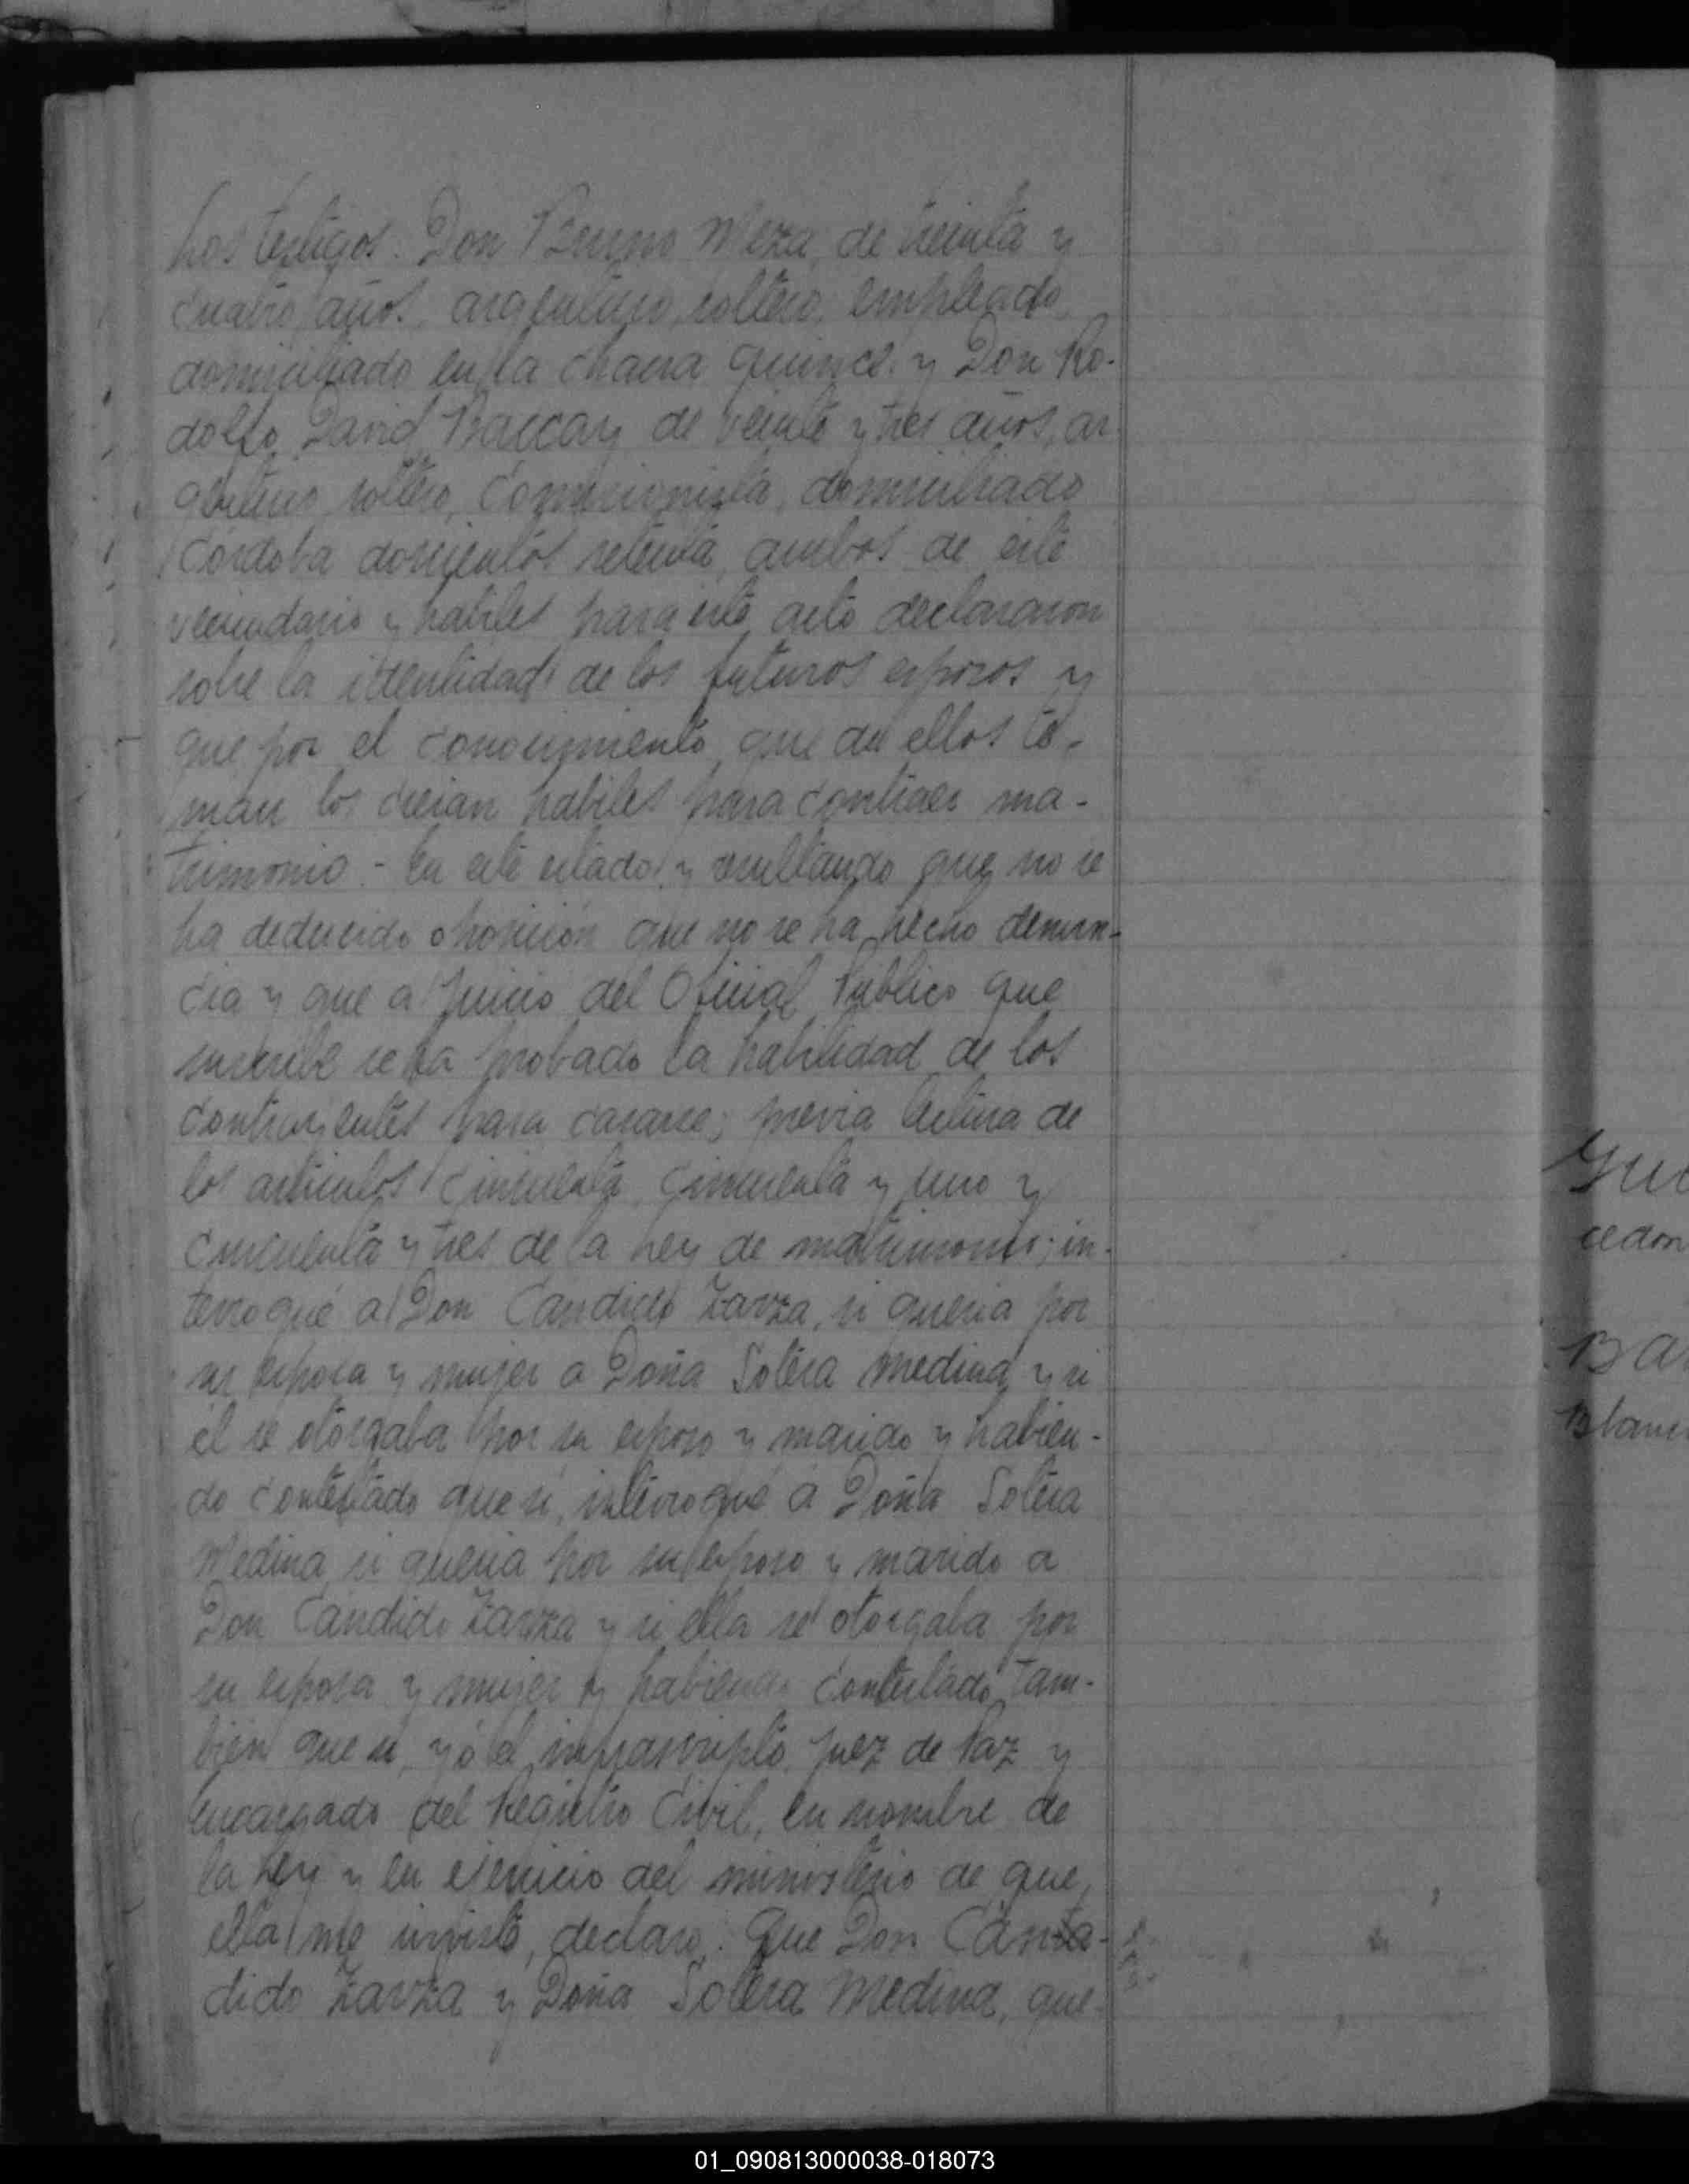 Los testigos. Don Bruno Meza, de treinta y
cuatro años, argentino, soltero, empleado,
domiciliado en la chacra quince y Don Ro-
dolfo David Baccay de veinte y tres años, ar-
gentino soltero, Comisionista, domiciliado
Cordoba doscientos setenta, ambos de este
vecindario y habiles para este acto declararon
sobre la identidad de los futuros esposos y
que por el conocimiento que de ellos te-
nian los creian habiles para contraer ma-
trimonio - En este estado y resultando que no se
ha deducido oposición que no se ha hecho denun-
cia y que a juicio del Oficial Público que
suscribe se ha probado la habilidad de los
contrayentes para casarse; previa lectura de
los articulos cincuenta, cincuenta y uno y
cincuenta y tres de la Ley de matrimonio; in-
terrogué a Don Candido Zarza, si queria por
su esposa y mujer a Doña Sotera Medina y si
el se otorgaba por su esposo y marido y habien-
do contestado que si, interrogué a Doña Sotera
Medina si queria por su esposo y marido a
Don Candido Zarza y si ella se otorgaba por
su esposa y mujer y habiendo contestado tam-
bién que si, yó el infrascripto Juez de Paz y
encargado del Registro Civil, en nombre de
la Ley y en ejercicio del ministerio de que
ella me inviste, declaro: Que Don Can-
dido Zarza y Doña Sotera Medina, que-
cedon
Ba
Blan
01_090813000038-018073